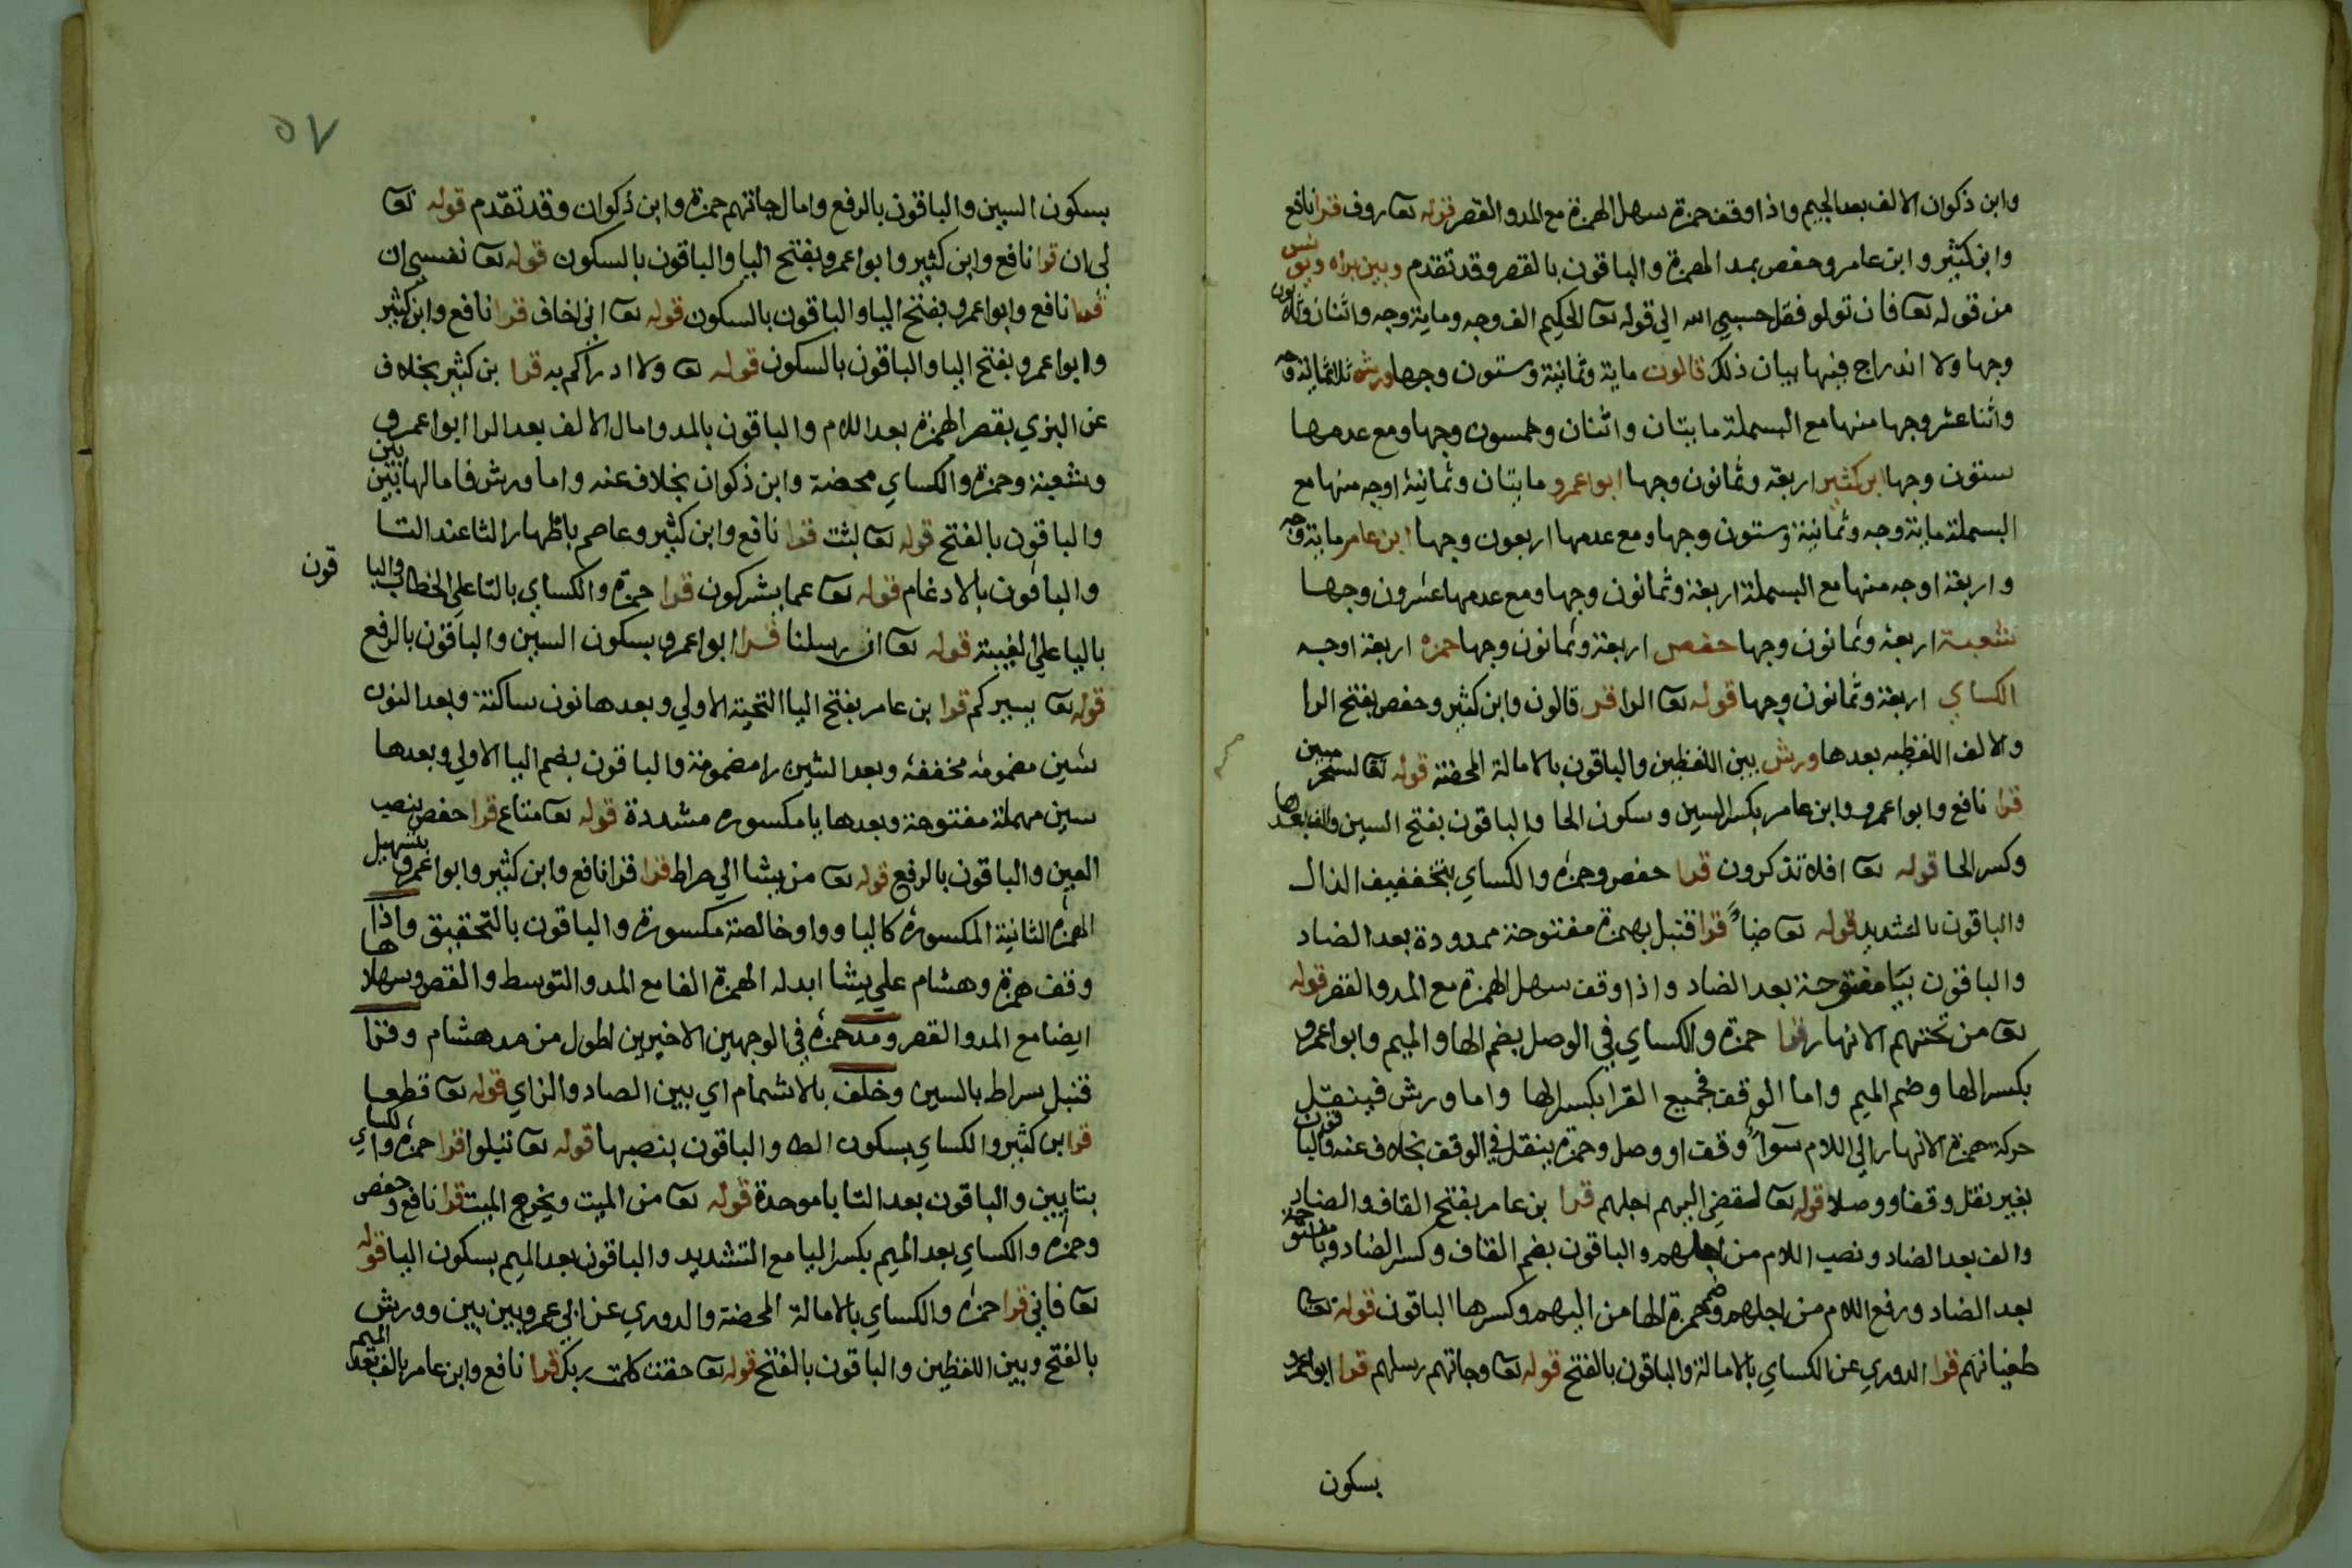 وابن ذكوان الالف بعد الجيم واذا وقف حمزة سهل الهمزة مع المد والقصر قوله تعا روف قرا نافع
وابن كثير وابن عامر وحفص بمد الهمزة والباقون بالقصر وقد تقدم وبين براه ويونس
من قوله تعا فان تولو فقل حسبي الله الي قوله تعا الحكيم الف وجه وماية وجه واثنان وثلاثون
وجها ولا اندراج فيها بيان ذلك قالون ماية وثمانية وستون وجها ورش ثلاثماية وجه
واثنا عشر وجها منها مع البسملة مايتان واثنان وخمسون وجها ومع عدمها
ستون وجها ابن كثير اربعة وثمانون وجها ابوا عمرو مايتان وثمانية اوجه منها مع
البسملة ماية وجه وثمانية وستون وجها ومع عدمها اربعون وجها ابن عامر ماية وجه
واربعة اوجه منها مع البسملة اربعة وثمانون وجها ومع عدمها عشرون وجها
شعبة اربعة وثمانون وجها حفص اربعة وثمانون وجها حمزه اربعة اوجه
الكساي اربعة وثمانون وجها قوله تعا الرا قر قالون وابن كثير وحفص بفتح الرا
والالف اللفظيه بعدها ورش بين اللفظين والباقون بالامالة المحضة قوله تعا لسحر مبين
قرا نافع وابوا عمرو وابن عامر بكسر السين وسكون الحا والباقون بفتح السين والف بعدها
وكسر الحا قوله تعا افلا تذكرون قرا حفص وحمزة والكساي بتخففيف الذال
والباقون بالتشديد قوله تعا ضياً قرا قنبل بهمزة مفتوحة ممدودة بعد الضاد
والباقون بيا مفتوحة بعد الضاد واذا وقف سهل الهمزة مع المد والقصر قوله
تعا من تحتهم الانهار قرا حمزة والكساي في الوصل بضم الها والميم وابوا عمرو
بكسر الها وضم الميم واما الوقف فجميع القرا بكسر الها واما ورش فينقل
حركة همزة الانهار الي اللام سوآءً وقف او وصل وحمزة ينقل في الوقف بخلاف عنه والباقون
بغير نقل وقفا ووصلا قوله تعا لقضي اليهم اجلهم قرا بن عامر بفتح القاف والضاد
والف بعد الضاد ونصب اللام من اجلهم والباقون بضم القاف وكسر الضاد ويا مفتوحة
بعد الضاد ورفع اللام من اجلهم وضم حمزة الها من اليهم وكسرها الباقون قوله تعا
طغيانهم قرا الدوري عن الكساي بالامالة والباقون بالفتح قوله تعا وجاتهم رسلهم قرا ابوا عمرو
بسكون
٥٧
بسكون السين والباقون بالرفع وامال جاتهم حمزة وابن ذكوان وقد تقدم قوله تعا
لي ان قرا نافع وابن كثير وابوا عمرو بفتح اليا والباقون بالسكون قوله تعا نفسي ان
قرا نافع وابوا عمرو بفتح اليا والباقون بالسكون قوله تعا اني اخاف قرا نافع وابن كثير
وابوا عمرو بفتح اليا والباقون بالسكون قوله تعا ولا ادراكم به قرا بن كثير بخلاف
عن البزي بقصر الهمزة بعد اللام والباقون بالمد وامال الالف بعد الرا ابوا عمرو
وشعبة وحمزة والكساي محضة وابن ذكوان بخلاف عنه واما ورش فامالها بين بين
والباقون بالفتح قوله تعا لبثت قرا نافع وابن كثير وعاصم باظهار الثا عند التا
والباقون بالادغام قوله تعا عما يشركون قرا حمزة والكساي بالتا علي الخطاب والباقون
باليا علي الغيبة قوله تعا ان رسلنا قرا ابوا عمرو بسكون السين والباقون بالرفع
قوله تعا يسيركم قرا بن عامر بفتح اليا التحتية الاولي وبعدها نون ساكنة وبعد النون
شين مضمومة مخففة وبعد الشين را مضمومة والباقون بضم اليا الاولي وبعدها
سين مهملة مفتوحة وبعدها يا مكسوره مشددة قوله تعا متاع قرا حفص بنصب
العين والباقون بالرفع قوله تعا من يشا الي صراط قرا قرا نافع وابن كثير وابوا عمرو بتسهيل
الهمزة الثانية المكسورة كاليا وواو خالصة مكسورة والباقون بالتحقيق واذا
وقف حمزة وهشام علي يشا ابدله الهمزة الفا مع المد والتوسط والقصر وسهلاها
ايضا مع المد والقصر ومد حمزة في الوجهين الاخيرين اطول من مد هشام وقرا
قنبل سراط بالسين وخلف بالاشمام اي بين الصاد والزاي قوله تعا قطعا
قرا بن كثير والكساي بسكون الطا والباقون بنصبها قوله تعا تبلوا قرا حمزة والكساي
بتايين والباقون بعد التا با موحدة قوله تعا من الميت ويخرج الميت قرا نافع وحفص
وحمزة والكساي بعد الميم بكسر اليا مع التشديد والباقون بعد الميم بسكون اليا قوله
تعا فاني قرا حمزة والكساي بالامالة المحضة والدوري عن ابي عمرو بين بين وورش
بالفتح وبين اللفظين والباقون بالفتح قوله تعا حقت كلمت ربك قرا نافع وابن عامر بالف بعد الميم